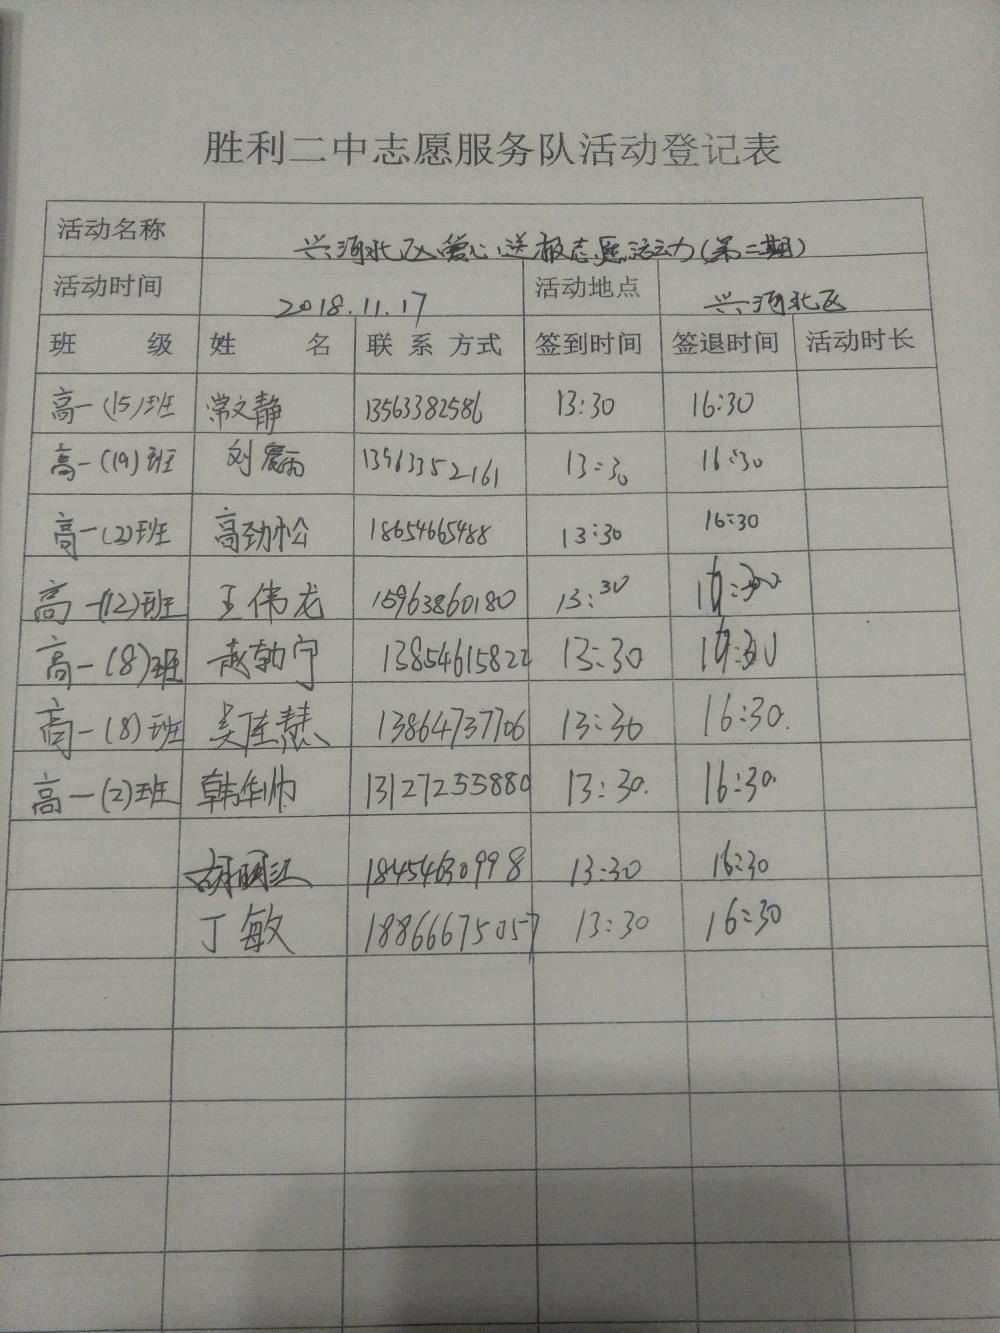 胜利二中志愿服务队活动登记表
活动名称 兴河北区爱心送报志愿活动(第二期)
活动时间 2018.11.17 活动地点 兴河北区
班 级 姓 名 联系方式 签到时间 签退时间 活动时长
高一(15)班 常文静 13563382586 13:30 16:30
高一(19)班 刘震丙 13963352161 13:30 16:30
高一(2)班 高劲松 18654665488 13:30 16:30
高一(12)班 王伟龙 15963860180 13:30
高一(8)班 赵勃宁 13854615822 13:30
高一(8)班 吴佳慧 13864737706 13:30 16:30.
高一(2)班 韩华帅 13127255880 13:30. 16:30.
胡明江 18454630998 13:30 16:30
丁敏 18866675057 13:30 16:30